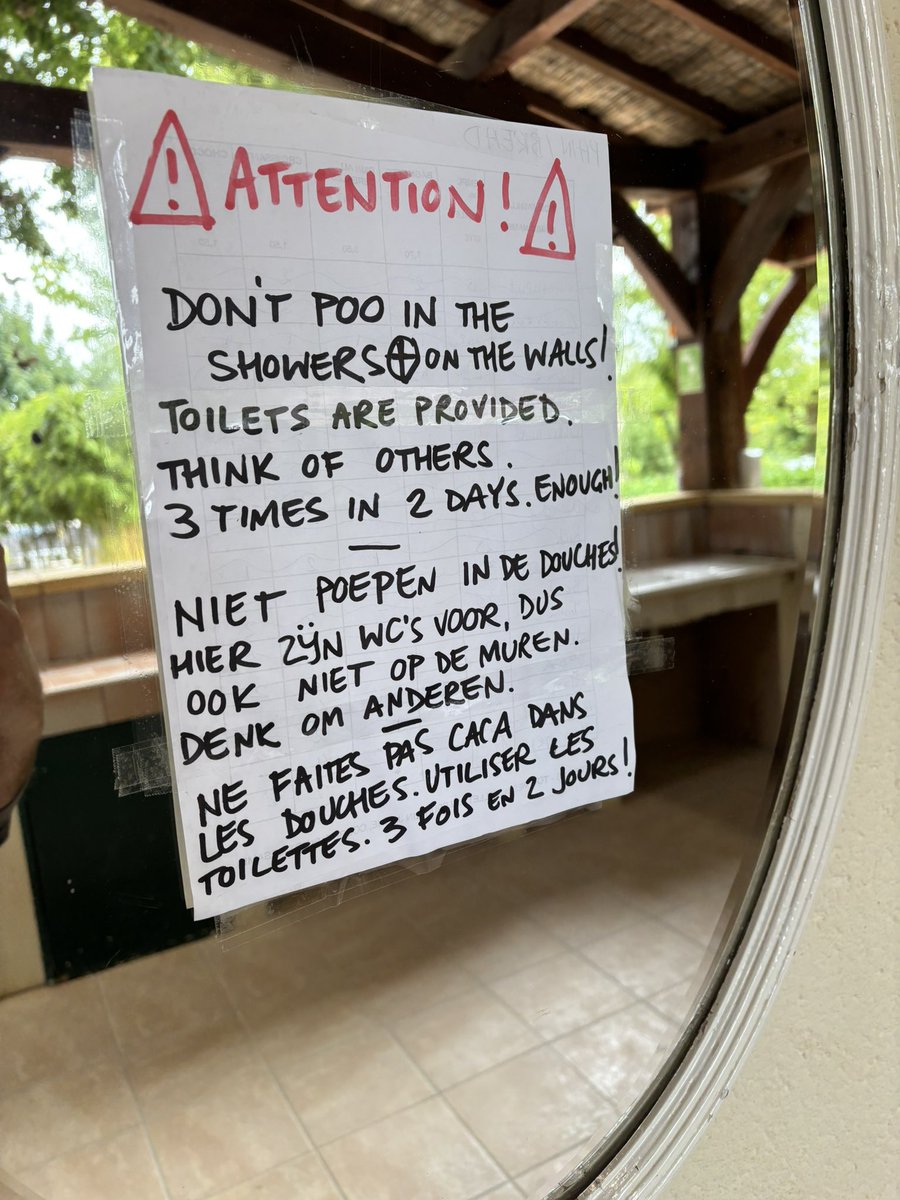 ! ATTENTION! !
DON'T POO IN THE
SHOWERS + ON THE WALLS!
TOILETS ARE PROVIDED.
THINK OF OTHERS.
3 TIMES IN 2 DAYS. ENOUGH!
—
NIET POEPEN IN DE DOUCHES!
HIER ZIJN WC'S VOOR, DUS
OOK NIET OP DE MUREN.
DENK OM ANDEREN.
—
NE FAITES PAS CACA DANS
LES DOUCHES. UTILISER LES
TOILETTES. 3 FOIS EN 2 JOURS!